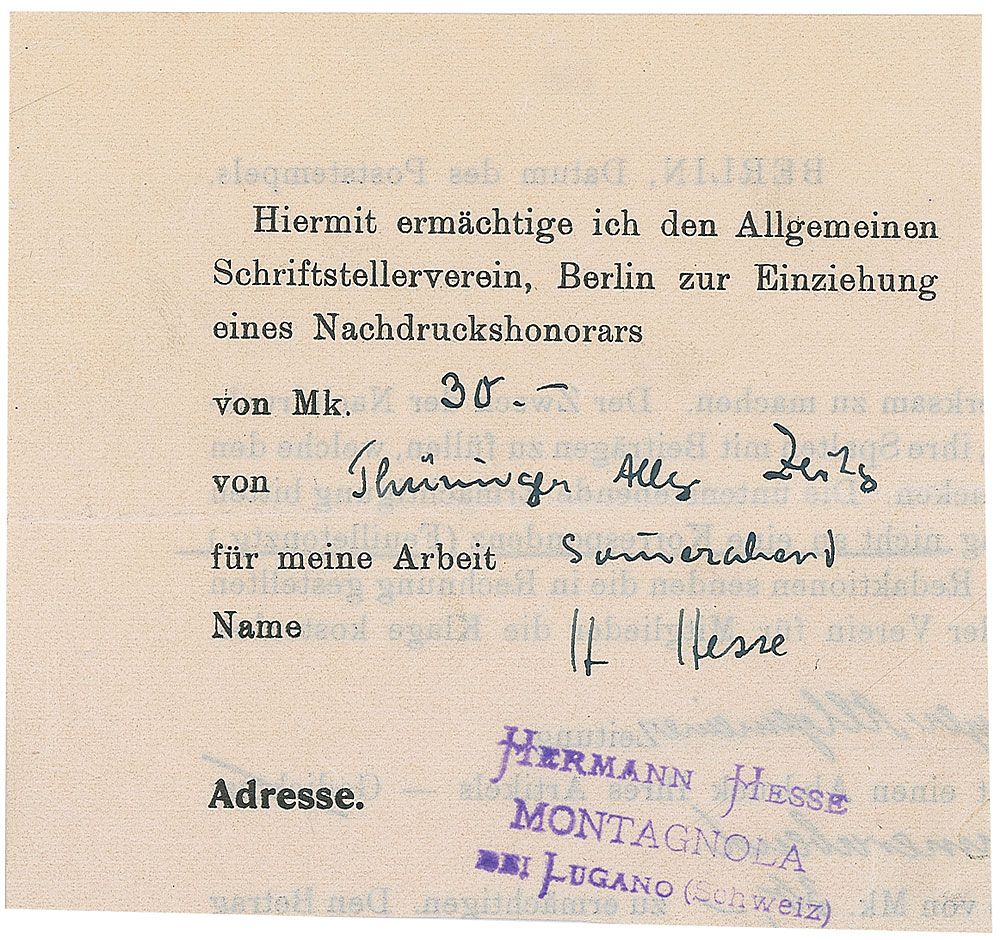 Hiermit ermächtige ich den Allgemeinen
Schriftstellerverein, Berlin zur Einziehung
eines Nachdruckshonorars
von Mk. 30.-
von Thüringer Allg Zeitg
für meine Arbeit Sommerabend
Name H Hesse
Adresse.
HERMANN HESSE
MONTAGNOLA
BEI LUGANO (Schweiz)